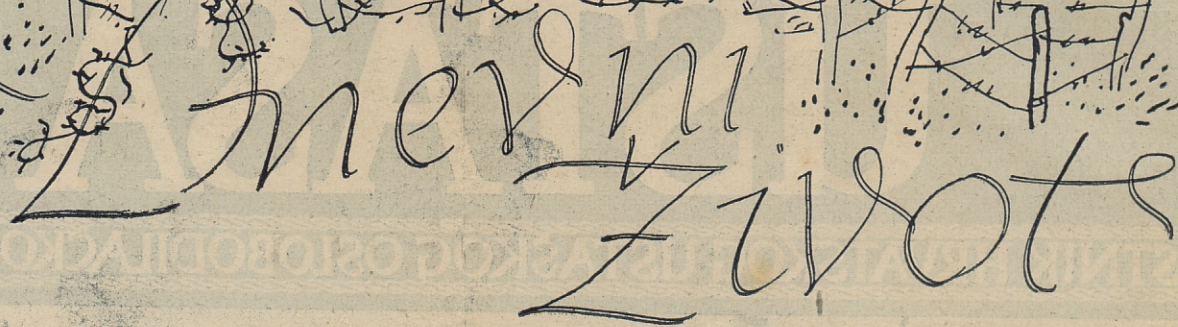 Dnevni
Život